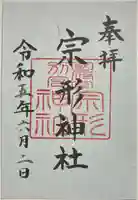 奉拝
宗形神社
令和五年六月二日